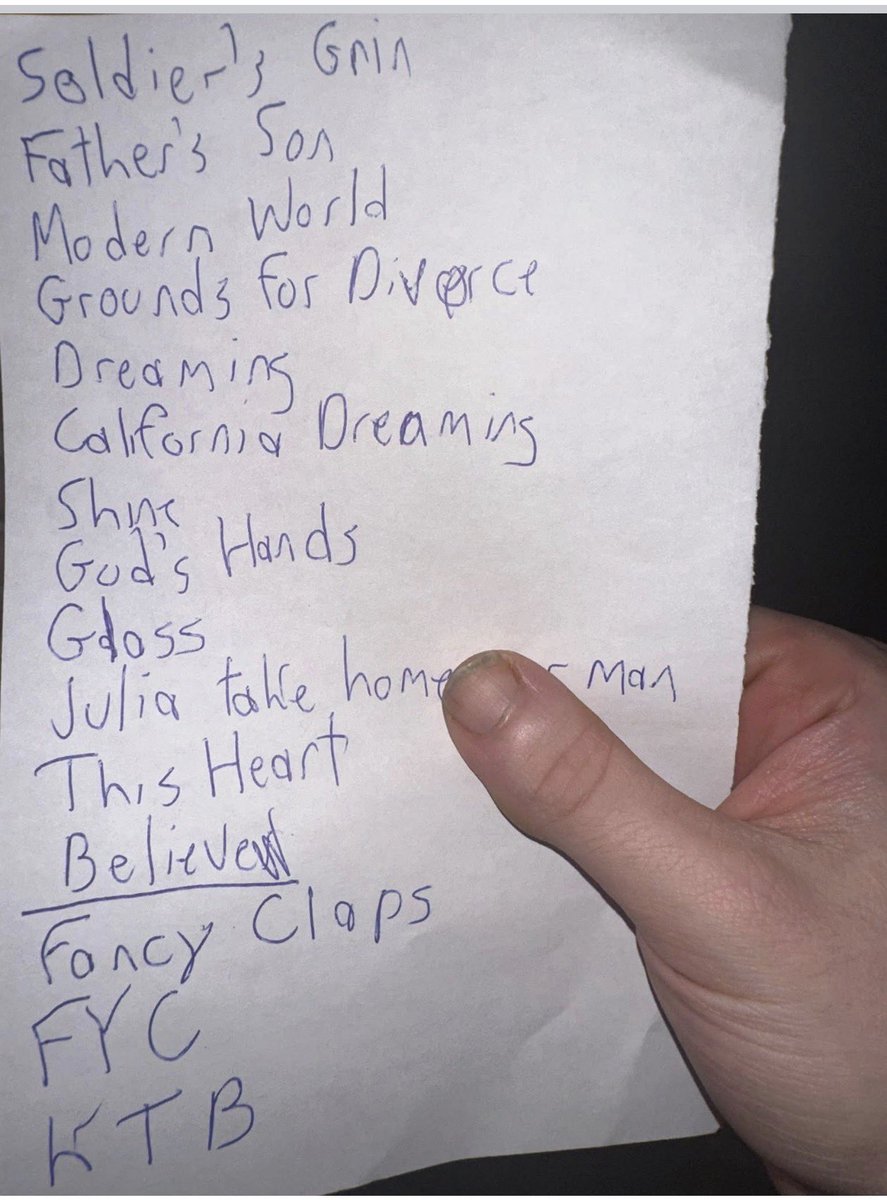 Soldier's Grin
Father's Son
Modern World
Grounds for Divorce
Dreaming
California Dreaming
Shine
God's Hands
Gloss
Julia take home man
This Heart
Believe
Fancy Claps
FYC
KTB